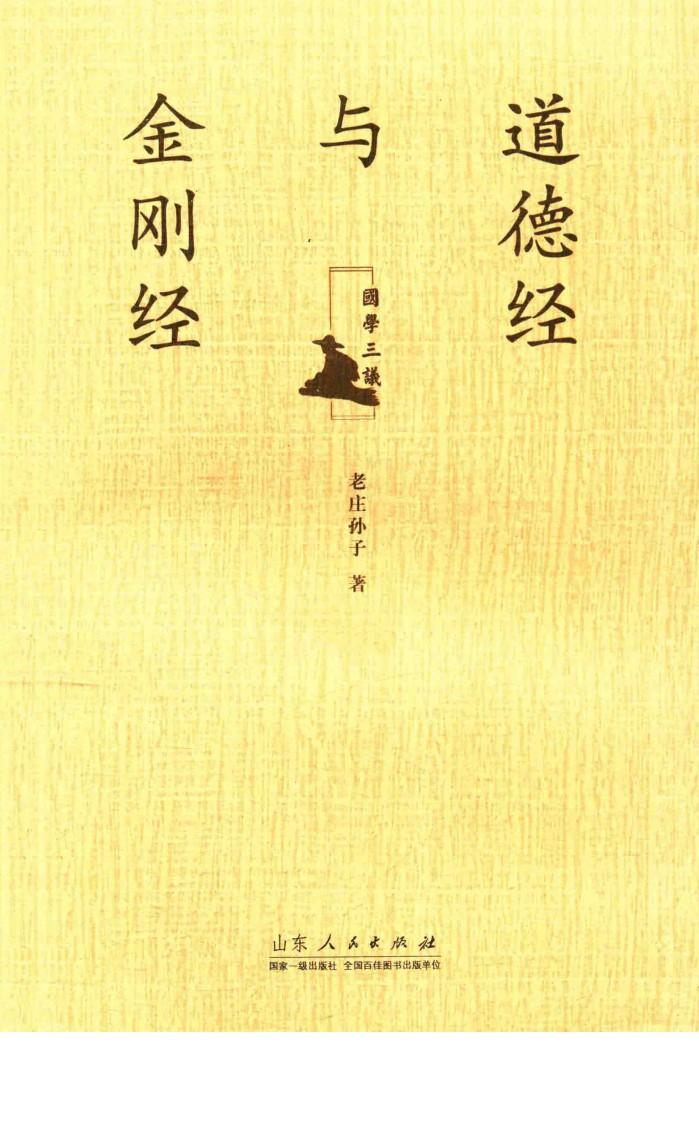 道德经
与
金刚经
國學三議
老庄孙子 著
山东人民出版社
国家一级出版社 全国百佳图书出版单位